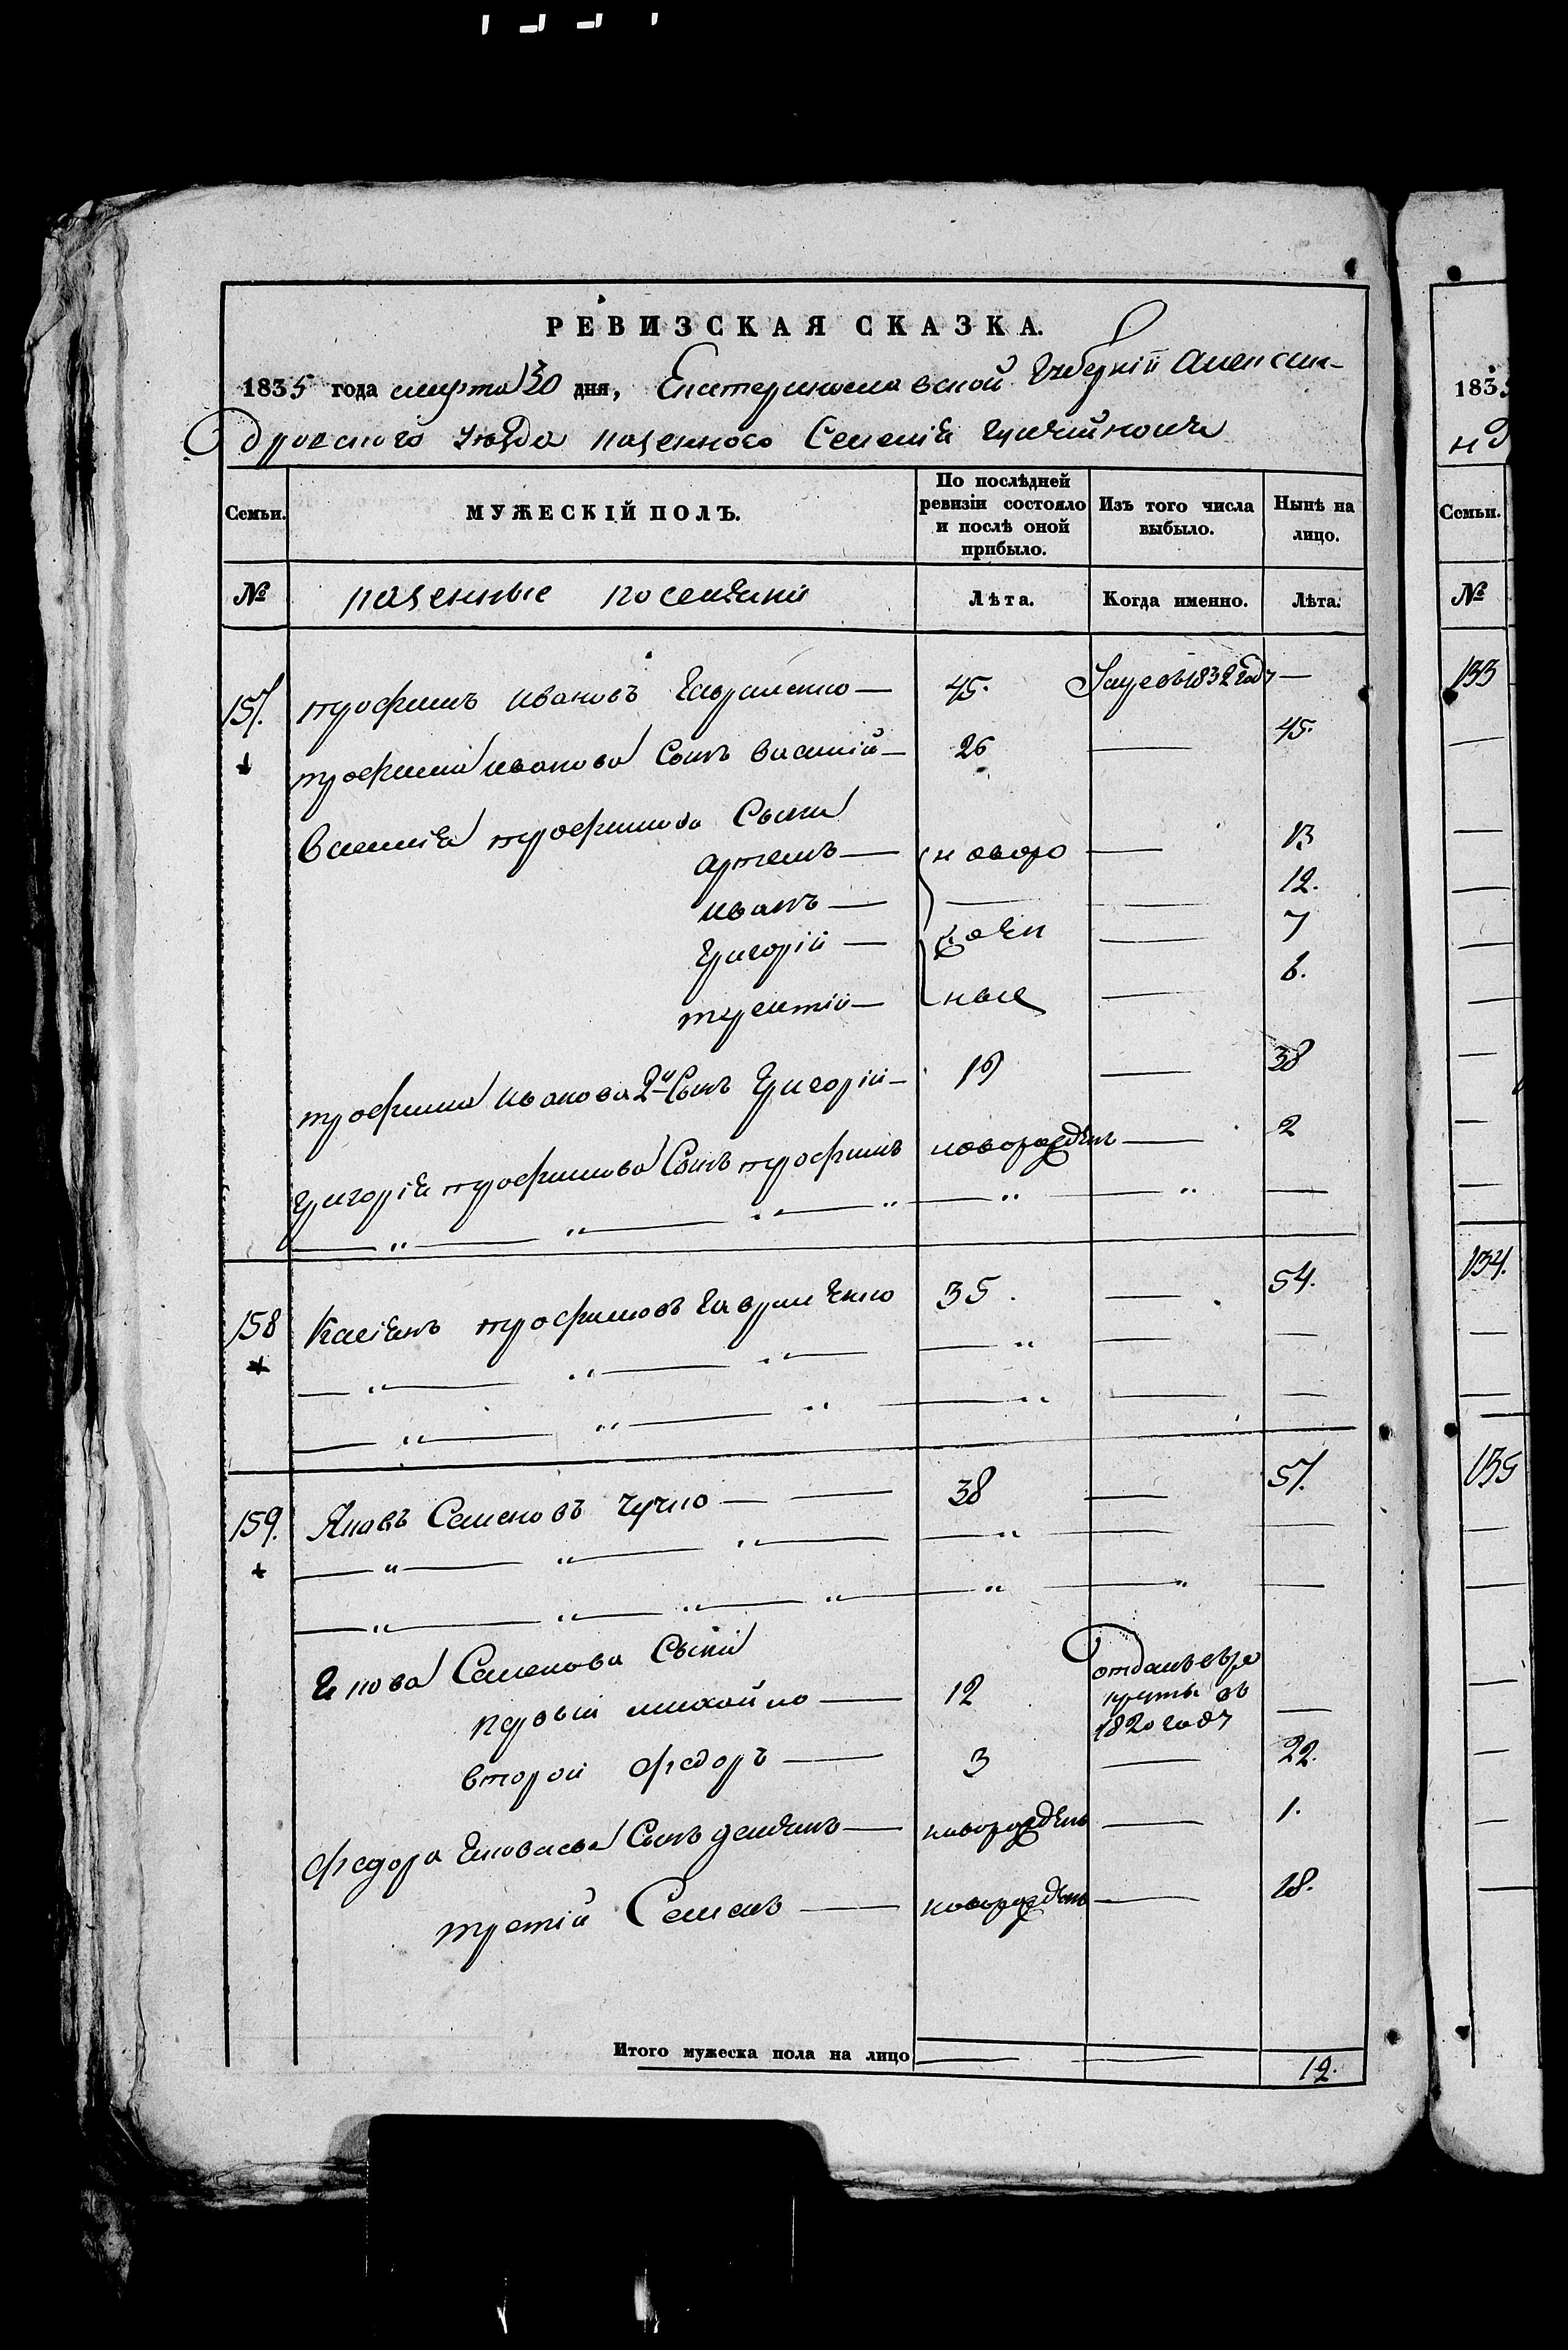 РЕВИЗСКАЯ СКАЗКА.
1835 года марта 30 дня, Екатеринославской Губерніи Алексан-
дровского уезда казенного Селенія
Семьи. МУЖЕСКІЙ ПОЛЪ. По послѣдней ревизіи состояло и послѣ оной прибыло. Изъ того числа выбыло. Нынѣ на лицо.
№ казенные поселяни Лѣта. Когда именно. Лѣта.
157. трофимъ ивановъ Гавриленко — 45. Умре въ 1832 году —
трофима иванова Сынъ василій — 26 — 45.
василія трофимова Сыни
артемъ — новоро — 13
иванъ — — — 12.
Григорій — жден — 7
терентій — ные — 6.
трофима иванова 2й Сынъ Григорій — 19 — 38
Григорія трофимова Сынъ трофимъ новорожденъ — 2
— „ — „ — „ — „ — „ — „ —
158 Касіянъ трофимовъ Гавриленко 35. — 54.
— „ — „ — „ — — „ — —
— „ — „ — „ — „ — —
159. Яковъ Семеновъ чучко — — 38 — 57.
— „ — „ — „ — — „ — —
— „ — „ — „ — „ — „ — „ —
Якова Семенова Сыни
первій михайло — 12 отданъ въ ре
круты въ
1820 году —
второй федоръ — 3 — 22.
федора Яковлева Сынъ демянъ — новорожденъ — 1.
третій Семенъ — новорожденъ — 18.
Итого мужеска пола на лицо — — 12.
183
Семьи.
№
133
134.
135